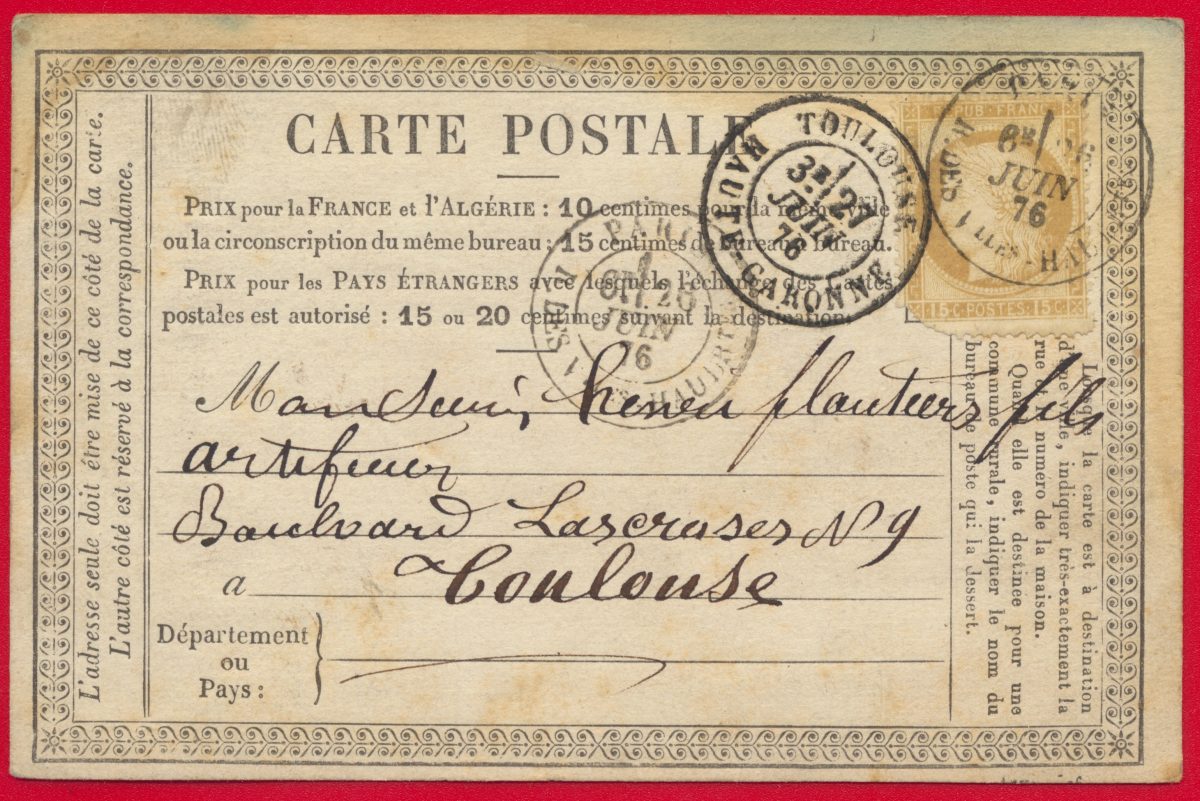 CARTE POSTALE
PRIX pour la FRANCE et l'ALGÉRIE : 10 centimes pour la même ville
ou la circonscription du même bureau ; 15 centimes de bureau à bureau.
PRIX pour les PAYS ÉTRANGERS avec lesquels l'échange des Cartes
postales est autorisé : 15 ou 20 centimes suivant la destination.
PARIS
6E 26
JUIN
76
R. DES VLLES-HAUDRTES
TOULOUSE
3E 27
JUIN
76
HAUTE-GARONNE
REPUB·FRANC
15·C·POSTES·15·C
PARIS
6E 26
JUIN
76
R. DES VLLES-HAU
Monsieur, planteurs fils
artificier
Boulevard Lascroses N 9
a Toulouse
Département
ou
Pays :
L'adresse seule doit être mise de ce côté de la carte.
L'autre côté est réservé à la correspondance.
Lorsque la carte est à destination
d'une ville, indiquer très-exactement la
rue et le numéro de la maison.
Quand elle est destinée pour une
commune rurale, indiquer le nom du
bureau de poste qui la dessert.